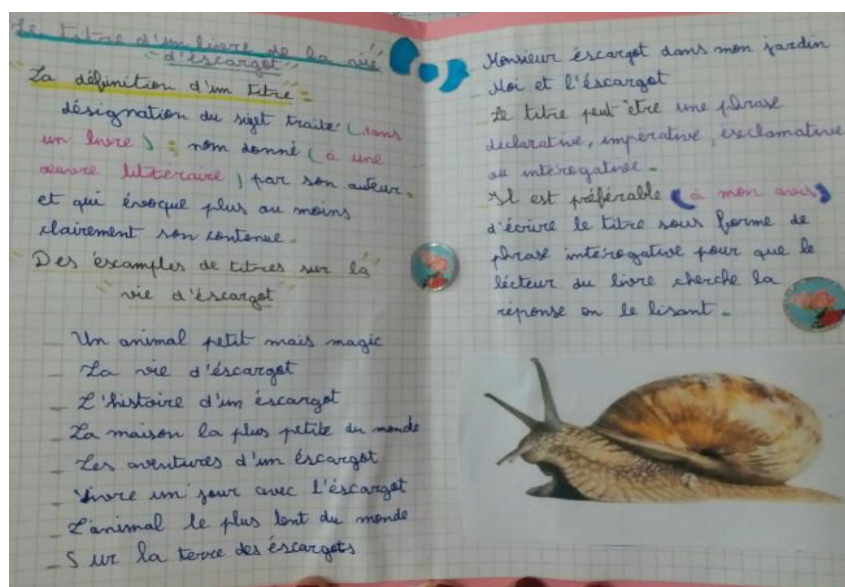 Le titre d'un livre de la vie
"d'escargot"
La définition d'un titre =
désignation du sujet traité (dans
un livre) ; nom donné (à une
œuvre littéraire) par son auteur.
et qui évoque plus ou moins
clairement son contenue.
Des éxamples de titres sur la
vie d'éscargot
_ Un animal petit mais magic
_ La vie d'éscargot
_ L'histoire d'un éscargot
_ La maison la plus petite du monde
_ Les aventures d'un éscargot
_ Vivre un jour avec l'éscargot
_ L'animal le plus lent du monde
_ Sur la terre des éscargots
_ Monsieur éscargot dans mon jardin
_ Moi et l'éscargot
Le titre peut être une phrase
déclarative, impérative, exclamative
ou intérogative.
Il est préférable (à mon avis)
d'écrire le titre sous forme de
phrase intérogative pour que le
lécteur du livre cherche la
réponse en le lisant.